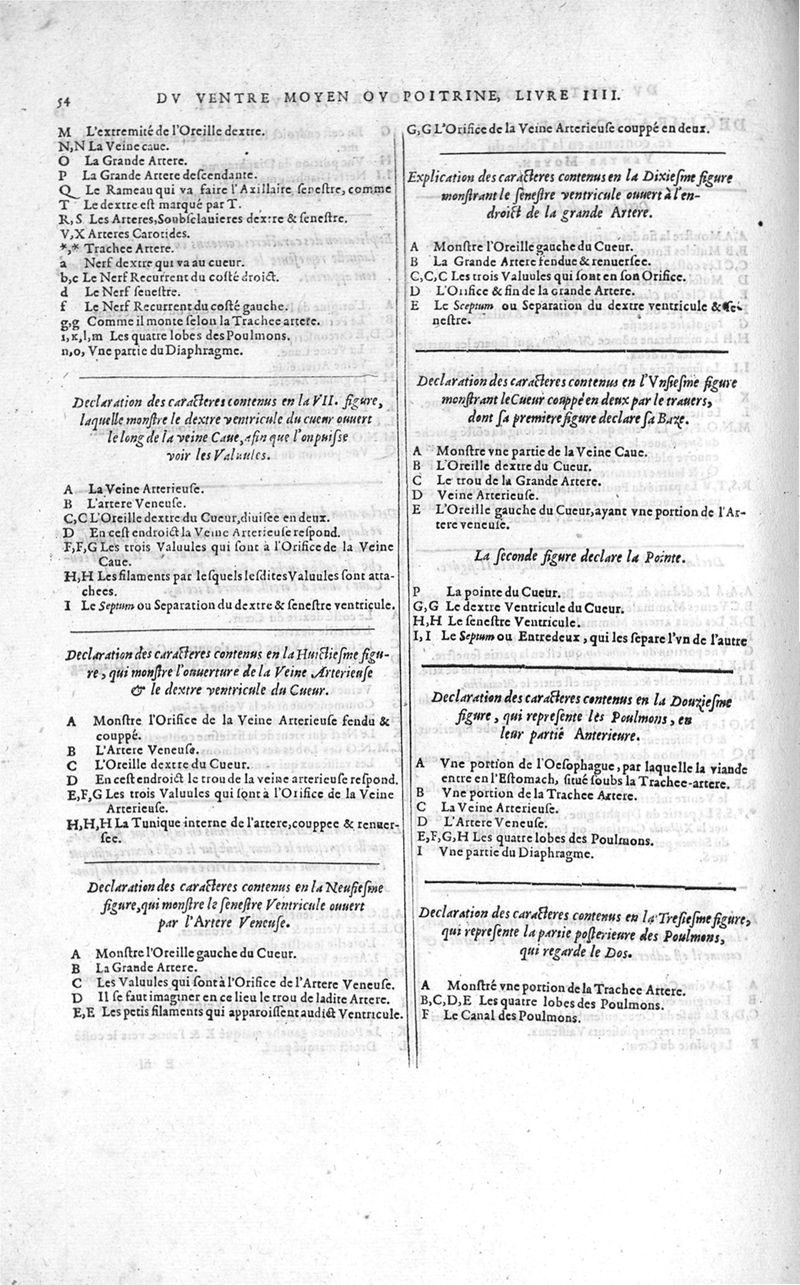 54
DV VENTRE MOYEN OV POITRINE, LIVRE IIII.
M L'extremité de l'Oreille dextre.
N,N La Veine caue.
O La Grande Artere.
P La Grande Artere deſcendante.
Q Le Rameau qui va faire l'Axillaire ſeneſtre, comme
T Le dextre eſt marqué par T.
R,S Les Arteres, Soubſclauieres dextre & ſeneſtre.
V,X Arteres Carotides.
*,* Trachee Artere.
a Nerf dextre qui va au cueur.
b,c Le Nerf Recurrent du coſté droict.
d Le Nerf ſeneſtre.
f Le Nerf Recurrent du coſté gauche.
g,g Comme il monte ſelon la Trachee artere.
i,k,l,m Les quatre lobes des Poulmons.
n,o, Vne partie du Diaphragme.
Declaration des caracteres contenus en la VII. figure,
laquelle monſtre le dextre ventricule du cueur ouuert
le long de la veine Caue, afin que l'on puiſſe
voir les Valuules.
A La Veine Arterieuſe.
B L'artere Veneuſe.
C,C L'Oreille dextre du Cueur, diuiſee en deux.
D En ceſt endroict la Veine Arterieuſe reſpond.
F,F,G Les trois Valuules qui ſont à l'Orifice de la Veine
Caue.
H,H Les filaments par leſquels leſdites Valuules ſont atta-
chees.
I Le Septum ou Separation du dextre & ſeneſtre ventricule.
Declaration des caracteres contenus en la Huictieſme figu-
re, qui monſtre l'ouuerture de la Veine Arterieuſe
& le dextre ventricule du Cueur.
A Monſtre l'Orifice de la Veine Arterieuſe fendu &
couppé.
B L'Artere Veneuſe.
C L'Oreille dextre du Cueur.
D En ceſt endroict le trou de la veine arterieuſe reſpond.
E,F,G Les trois Valuules qui ſont à l'Orifice de la Veine
Arterieuſe.
H,H,H La Tunique interne de l'artere, couppee & renuer-
ſee.
Declaration des caracteres contenus en la Neufieſme
figure, qui monſtre le ſeneſtre Ventricule ouuert
par l'Artere Veneuſe.
A Monſtre l'Oreille gauche du Cueur.
B La Grande Artere.
C Les Valuules qui ſont à l'Orifice de l'Artere Veneuſe.
D Il ſe faut imaginer en ce lieu le trou de ladite Artere.
E,E Les petis filaments qui apparoiſſent audict Ventricule.
G,G L'Orifice de la Veine Arterieuſe couppé en deux.
Explication des caracteres contenus en la Dixieſme figure
monſtrant le ſeneſtre ventricule ouuert à l'en-
droict de la grande Artere.
A Monſtre l'Oreille gauche du Cueur.
B La Grande Artere fendue & renuerſee.
C,C,C Les trois Valuules qui ſont en ſon Orifice.
D L'Orifice & fin de la Grande Artere.
E Le Septum ou Separation du dextre ventricule & ſe-
neſtre.
Declaration des caracteres contenus en l'Vnſieſme figure
monſtrant le Cueur couppé en deux par le trauers,
dont ſa premiere figure declare ſa Baze.
A Monſtre vne partie de la Veine Caue.
B L'Oreille dextre du Cueur.
C Le trou de la Grande Artere.
D Veine Arterieuſe.
E L'Oreille gauche du Cueur, ayant vne portion de l'Ar-
tere veneuſe.
La ſeconde figure declare la Pointe.
P La pointe du Cueur.
G,G Le dextre Ventricule du Cueur.
H,H Le ſeneſtre Ventricule.
I,I Le Septum ou Entredeux, qui les ſepare l'vn de l'autre
Declaration des caracteres contenus en la Douzieſme
figure, qui repreſente les Poulmons, en
leur partie Anterieure.
A Vne portion de l'Oeſophague, par laquelle la viande
entre en l'Eſtomach, ſitué ſoubs la Trachee-artere.
B Vne portion de la Trachee Artere.
C La Veine Arterieuſe.
D L'Artere Veneuſe.
E,F,G,H Les quatre lobes des Poulmons.
I Vne partie du Diaphragme.
Declaration des caracteres contenus en la Treſieſme figure,
qui repreſente la partie poſterieure des Poulmons,
qui regarde le Dos.
A Monſtré vne portion de la Trachee Artere.
B,C,D,E Les quatre lobes des Poulmons.
F Le Canal des Poulmons.